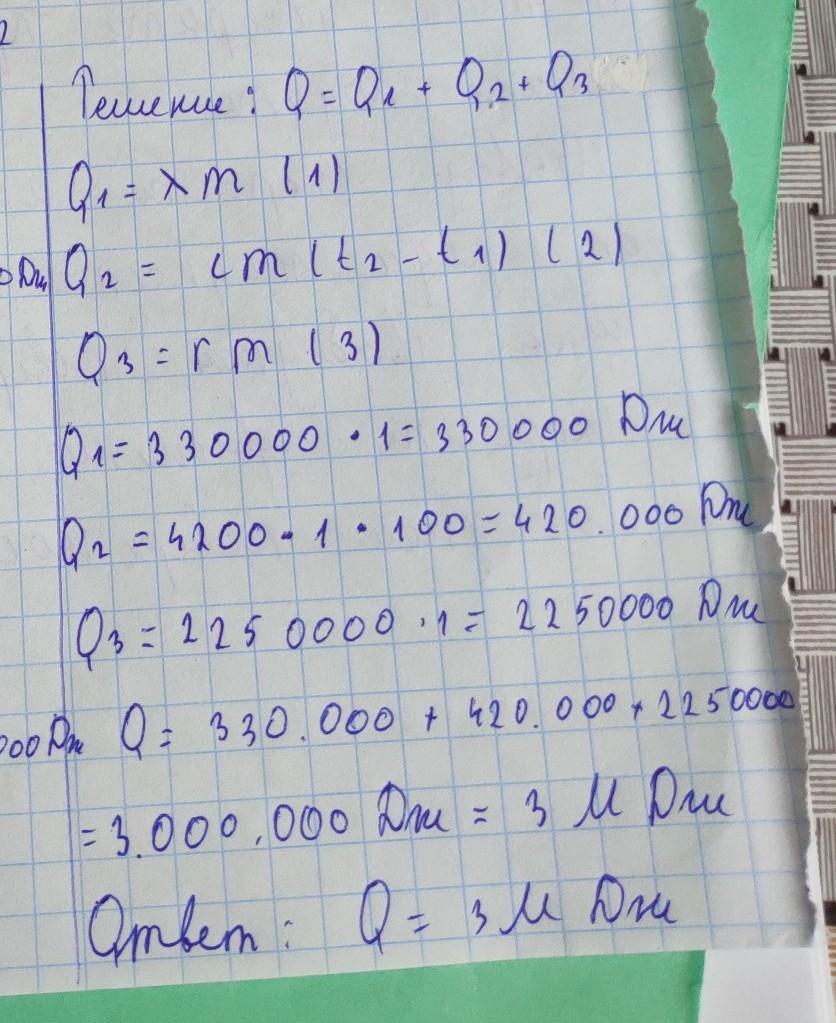 2
Решение: Q = Q1 + Q2 + Q3
Q1 = λ m (1)
0 Дж Q2 = c m (t2 - t1) (2)
Q3 = r m (3)
Q1 = 330000 · 1 = 330000 Дж
Q2 = 4200 · 1 · 100 = 420.000 Дж
Q3 = 2250000 · 1 = 2250000 Дж
000 Дж Q = 330.000 + 420.000 + 2250000
= 3.000.000 Дж = 3 М Дж
Ответ: Q = 3 М Дж